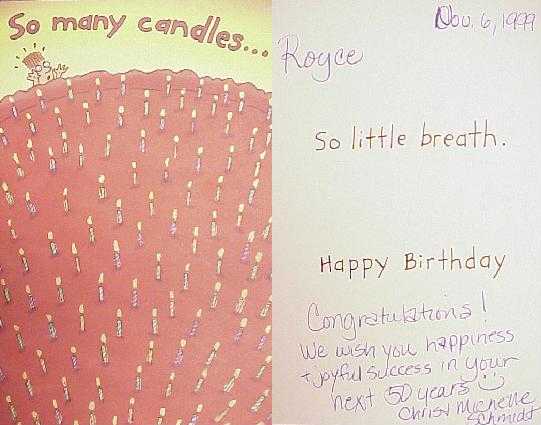 So many candles...
Nov. 6, 1999
Royce
So little breath.
Happy Birthday
Congratulations!
We wish you happiness
+ joyful success in your
next 50 years
Chris & Michelle
Schmidt